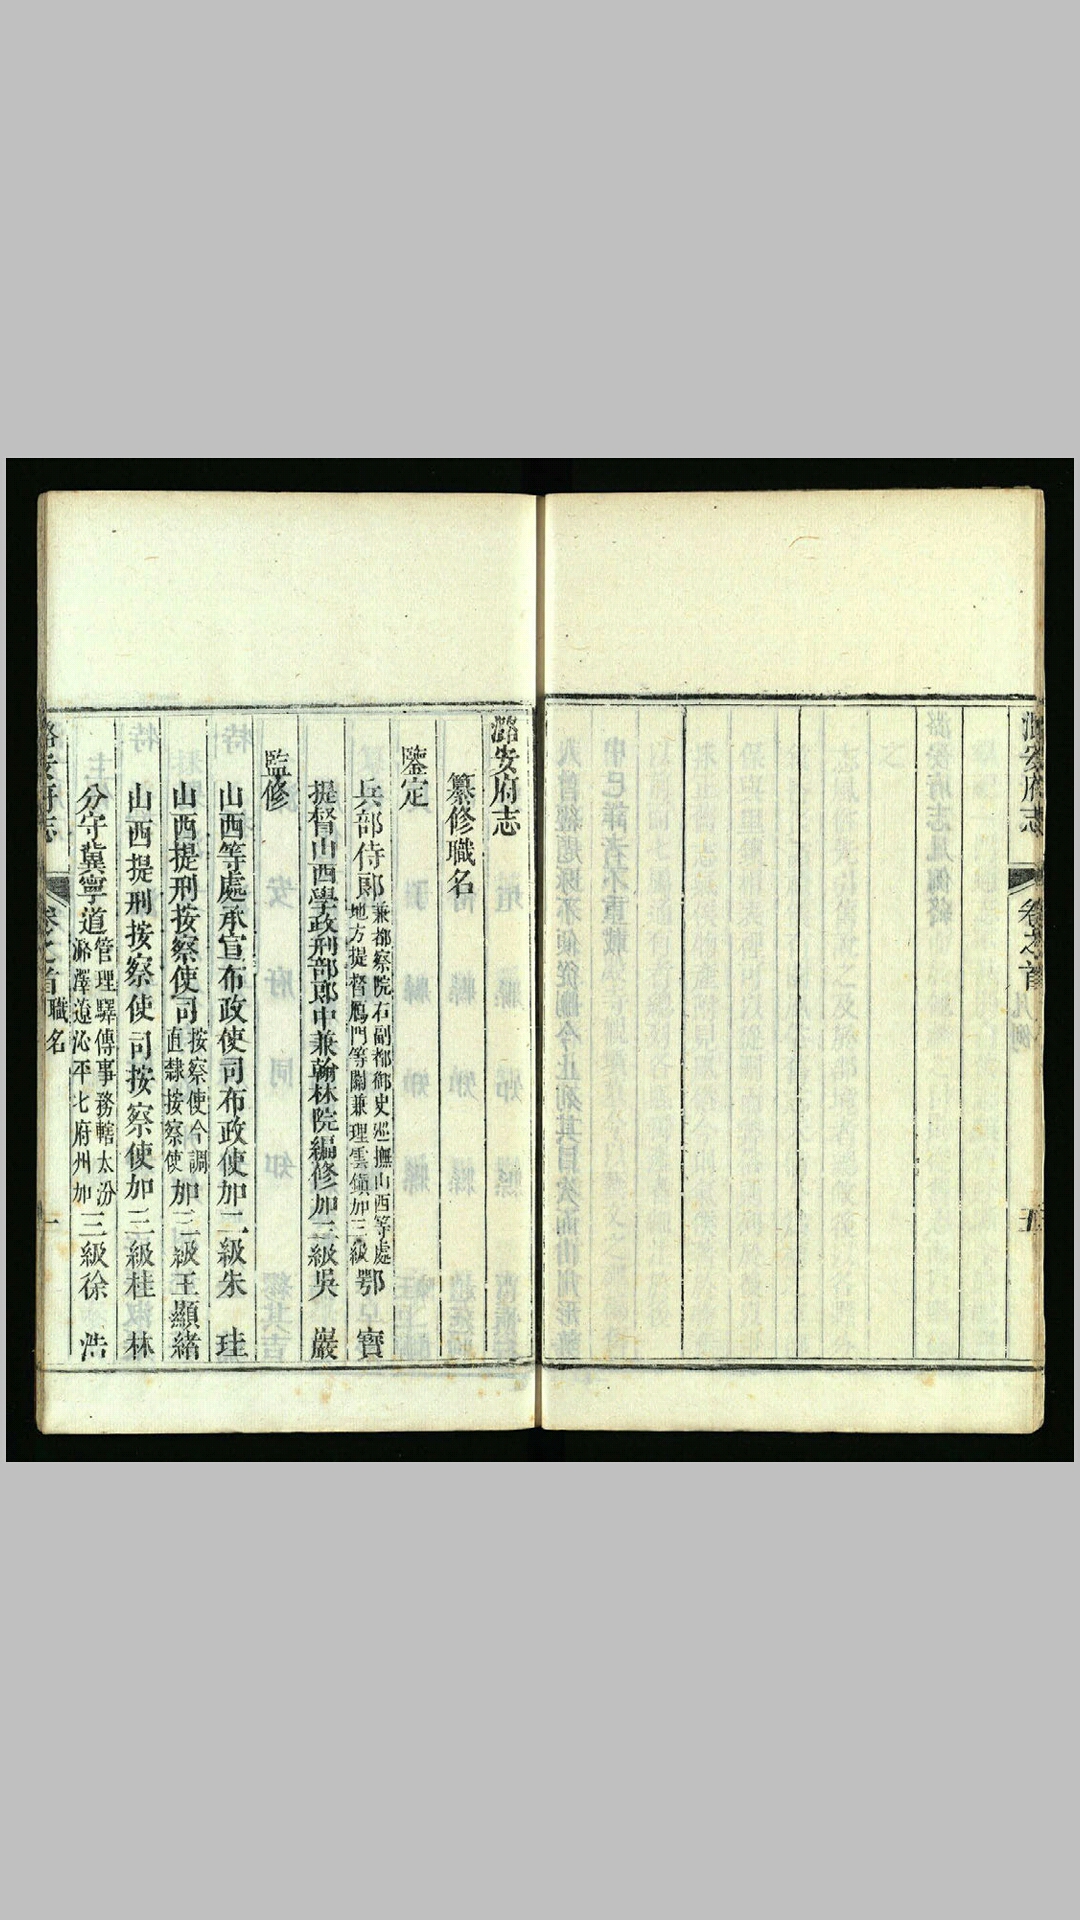 潞安府志
卷之首
凡例
五
潞安府志
纂修職名
鑒定
兵部侍郎兼都察院右副都御史巡撫山西等處地方提督鴈門等關兼理雲鎮加三級鄂　寶
提督山西學政刑部郎中兼翰林院編修加三級吳　巖
監修
山西等處承宣布政使司布政使加二級朱　珪
山西提刑按察使司按察使今調直隸按察使加二級王顯緒
山西提刑按察使司按察使加三級桂　林
分守冀寧道管理驛傳事務轄太汾潞澤遼沁平七府州加三級徐　浩
潞安府志
卷之首
職名
一